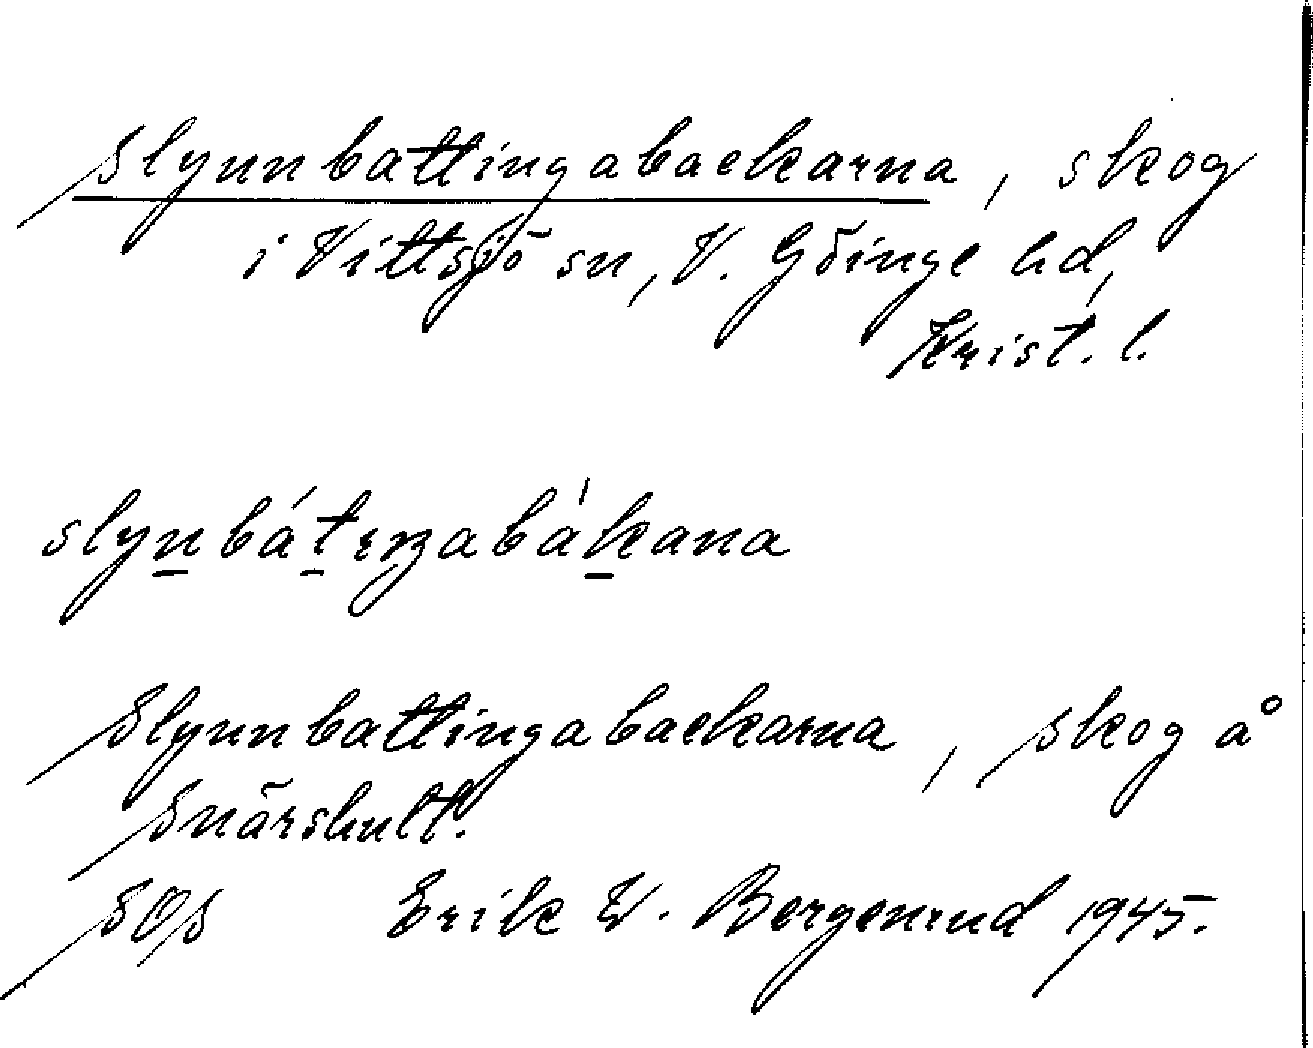 Slynnbattingabackarna, skog
i Vittsjö sn, V. Göinge hd,
Krist. l.
slynbátıŋabákana
Slynnbattingabackarna, skog å
Snärshult.
SOS Erik W. Bergenrud 1945.